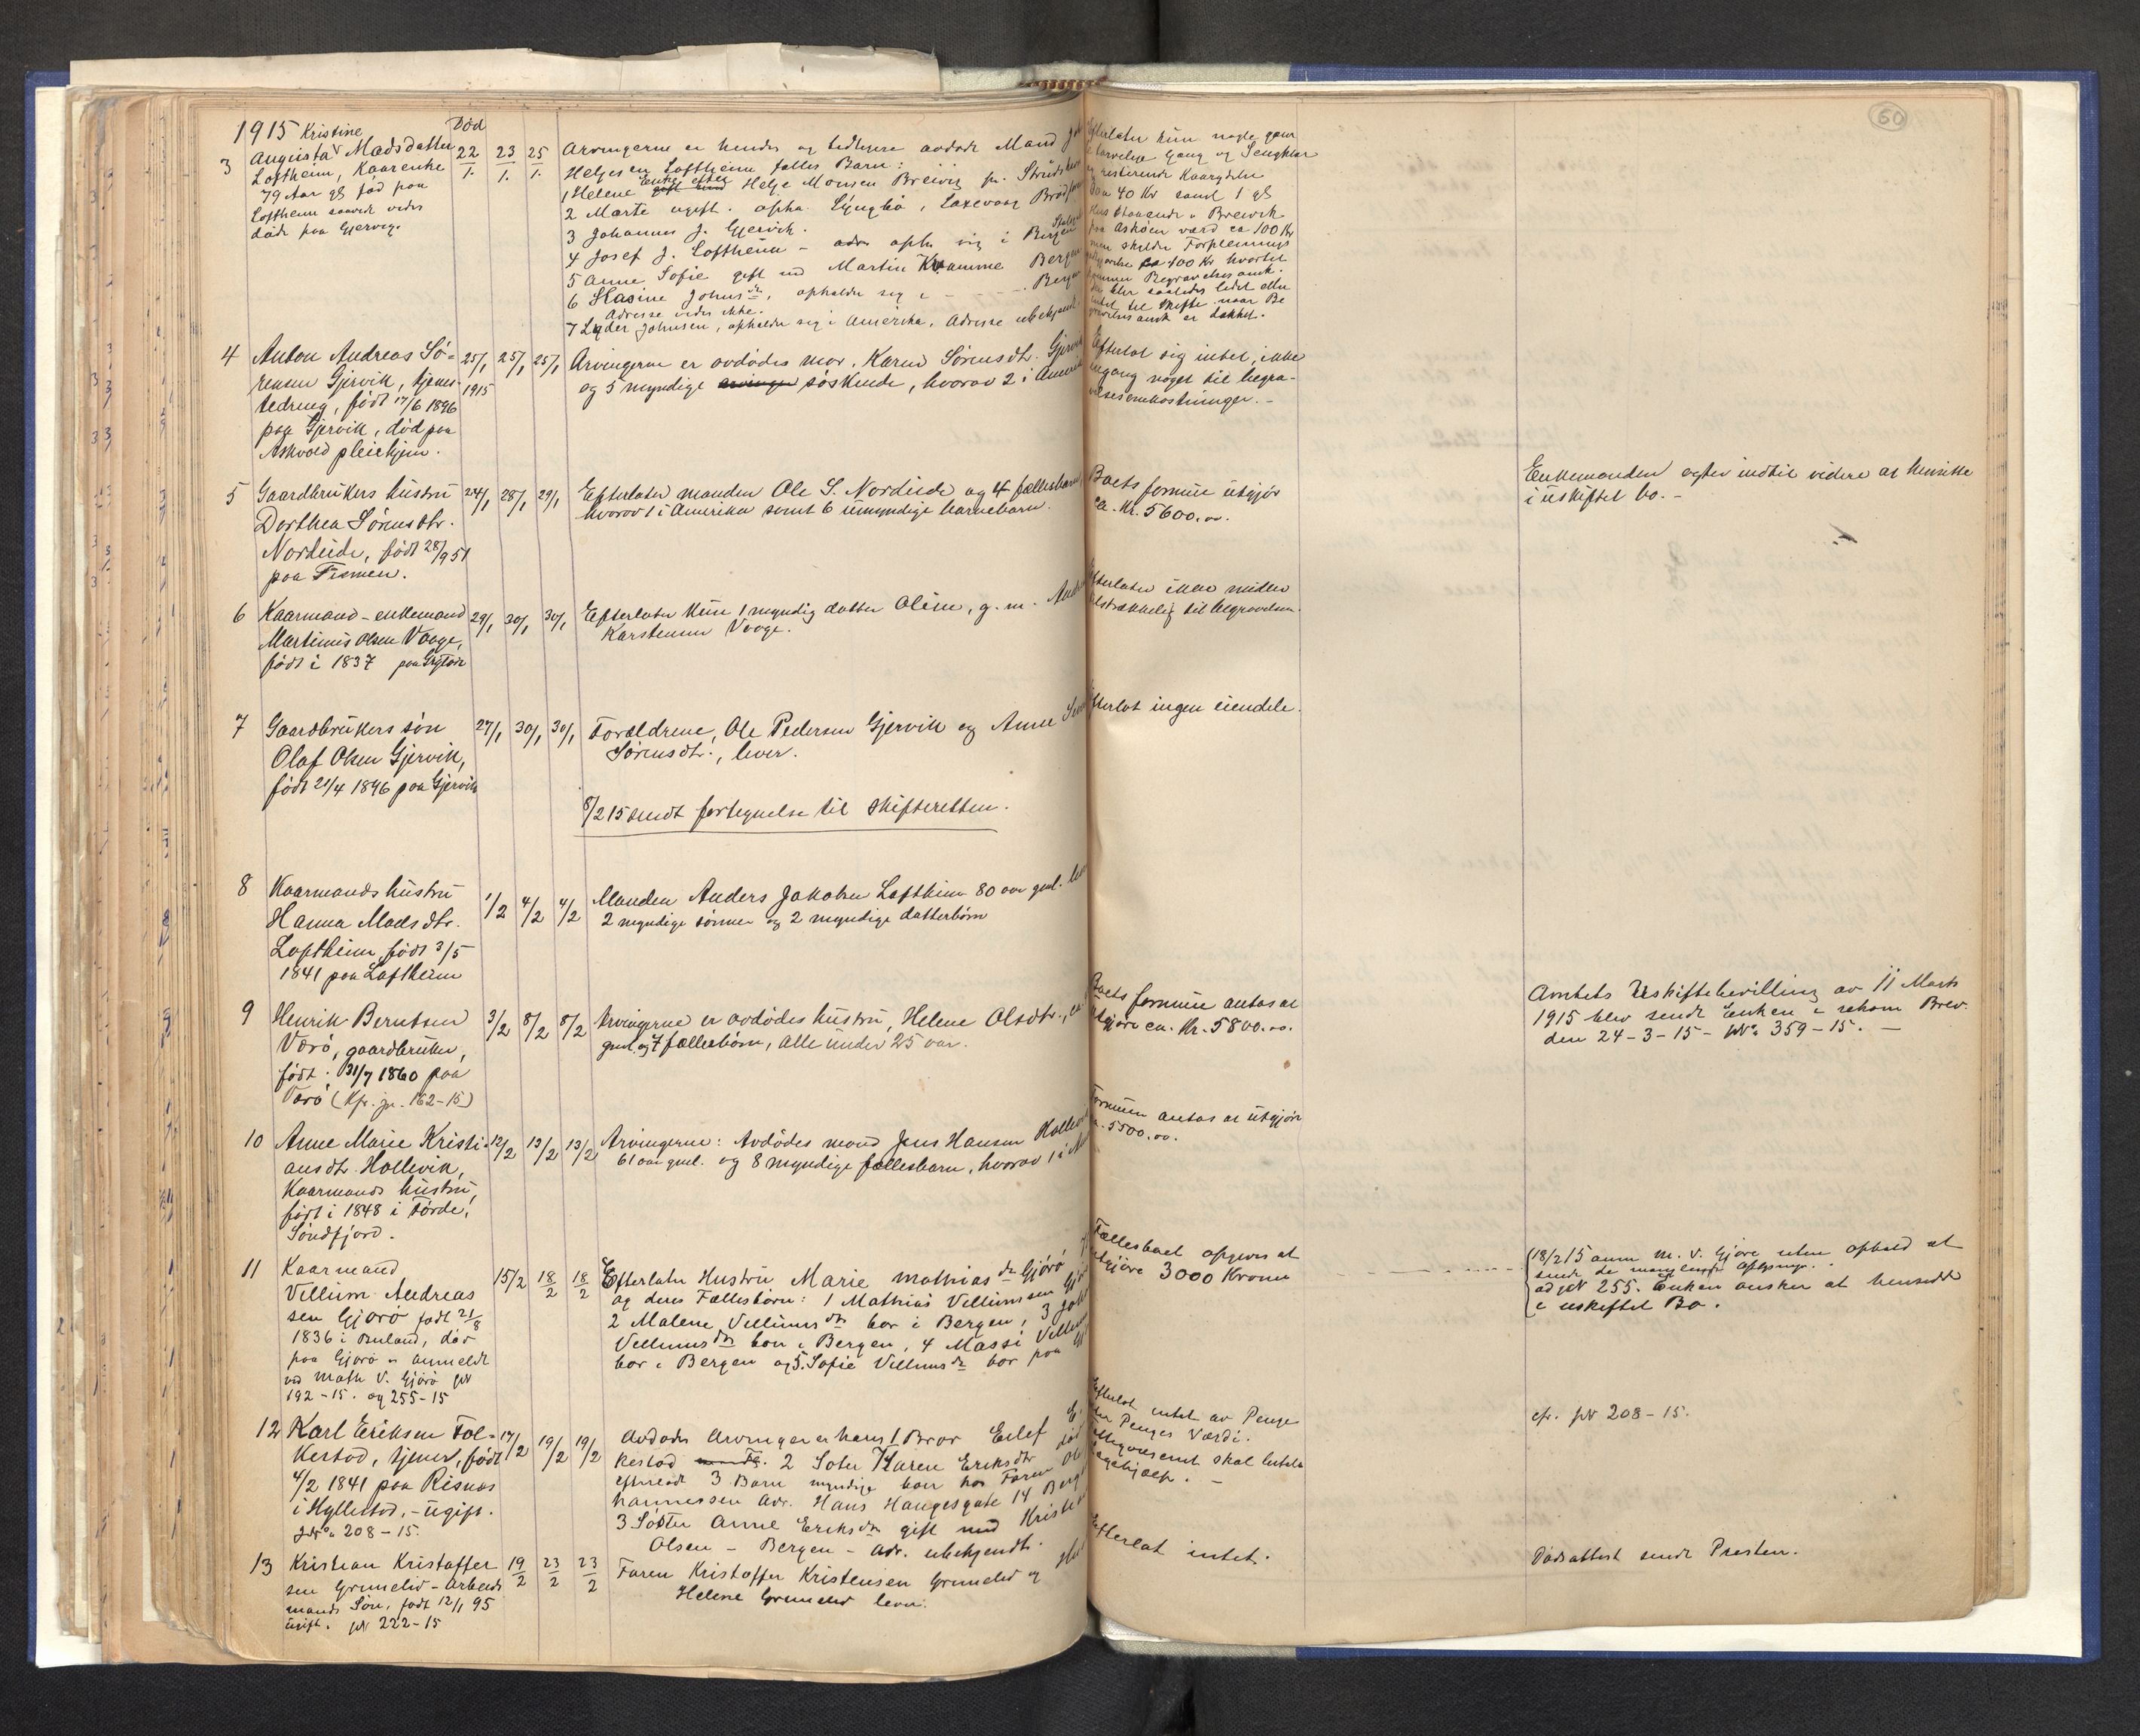 60
1915 Kristine
Død
3 Augusta Madsdatter 22/1. 23/1. 25/1.
Loftheim, Kaarenke
79 Aar gl fød paa
Loftheim saavidt vides
døde paa Gjervig.
Arvingerne er hendes og tidligere avdøde Mand
Helgesen Loftheim fælles Barn:
1 Helene gift med Enke efter Helge Monsen Breivig pr.
2 Marte ugift. opho. Lyngbø, Laxevaag
3 Johannes J. Gjervik.
4 Josef J. Loftheim - adr. opho. sig i Bergen
5 Anne Sofie gift md Martin Kvamme Bergen
6 Stasine Johnsdr, opholder sig i - - . Bergen
Adresse vides ikke.
7 Lyder Johnsen, opholder sig i Amerika. Adresse ubekjendt.
Efterlater kun nogle
tarvelige Gang og Sengklær
og resterende Kaarydelse
ca 40 Kr samt 1 gl
Hus staaende i Breivik
paa Askøen værd ca 100 Kr
men skylder Forpleinings
ca 100 Kr hvortil
kommer Begravelsesomk.
der blir saaledes lidet eller
intet til Skifte naar Be
gravelsesomk er dækket.
4 Anton Andreas Sø- 25/1 25/1 25/1
rensen Gjervik, tjenes- 1915
tedreng, født 17/6 1896
paa Gjervik, død paa
Askvold pleiehjem.
Arvingerne er avdødes mor, Karen Sørensdtr. Gjervik
og 5 myndige arvinger søskende, hvorav 2 i Amerika
Efterlot sig intet, ikke
engang noget til begra-
velsesomkostninger. -
5 Gaardbrukers hustru 24/1 28/1 29/1
Dorthea Sørensdtr.
Nordeide, født 28/9 51
paa Tismen.
Efterlater manden Ole S. Nordeide og 4 fællesbarn,
hvorav 1 i Amerika samt 6 umyndige barnebarn.
Boets formue utgjør
ca. Kr. 5600.00.
Enkemanden agter indtil videre at hensitte
i uskiftet bo. -
6 Kaarmand - enkemand 29/1 30/1 30/1
Martinus Olsen Vaage,
født i 1837 paa
Efterlater kun 1 myndig datter Oline, g. m.
Karstensen Vaage.
Efterlater ikke midler
tilstrækkelig til begravelsen.
7 Gaardbrukers søn 27/1 30/1 30/1
Olaf Olsen Gjervik,
født 21/4 1896 paa Gjervik
Forældrene, Ole Pedersen Gjervik og Anne
Sørensdtr., lever.
Efterlot ingen eiendele.
8/2 15 sendt fortegnelse til skifteretten.
8 Kaarmands hustru 1/2 4/2 4/2
Hanna Madsdtr.
Loftheim, født 3/5
1841 paa Loftheim
Manden Anders Jakobsen Loftheim 80 aar gml. lever
2 myndige sønner og 2 myndige datterbørn
9 Henrik Berntsen 3/2 8/2 8/2
Værø, gaardbruker,
født 31/7 1860 paa
Værø (Kfr. jn. 162-15)
Arvingerne er avdødes hustru, Helene Olsdtr.,
gml. og 7 fællesbørn, alle under 25 aar.
Boets formue antas at
utgjøre ca. Kr. 5800.00.
Amtets Uskiftebevilling av 11 Marts
1915 blev sendt Enken i rekom Brev.
den 24-3-15 - No 359-15. -
10 Anne Marie Kristi- 12/2 13/2 13/2
ansdtr. Hollevik,
Kaarmands hustru,
født i 1848 i Førde,
Søndfjord.
Arvingerne: Avdødes mand Jens Hansen Hollevik
61 aar gml. og 8 myndige fællesbarn, hvorav 1 i
Formuen antas at utgjøre
5500.00.
11 Kaarmand 15/2 18/2 18/2
Villum Andreas
sen Gjørø født 21/8
1836 i Buland, død
paa Gjørø - anmeldt
ved Math V. Gjørø
192-15. og 255-15
Efterlater Hustru Marie Mathiasdr Gjørø
og deres Fællesbørn: 1 Mathias Villumsen
2 Malene Villumsdr bor i Bergen, 3
Villumsdr bor i Bergen, 4 Massi
bor i Bergen og 5. Sofie Villumsdr bor paa
Fællesboet opgives at
utgjøre 3000 Kroner
18/2 15 anm M. V. Gjøre uten ophold at
sende de manglende Oplysn.
ad 255. Enken ønsker at hensidde
i uskiftet Bo.
12 Karl Eriksen Fol- 17/2 19/2 19/2
kestad, tjener, født
4/2 1841 paa Risnes
i Hyllestad, - ugift.
208-15.
Avdødes Arvinger er hans 1 Bror Enlef
kestad 2 Søter Karen Eriksdtr død
efterladt 3 Barn myndige bor hos Faren
hannessen Adr. Hans Haugesgate 14
3 Søster Anne Eriksdr gift med
Olsen - Bergen - adr. ubekjendt.
Efterlot intet av Penge
eller Penges Værdi.
skal betale
cfr. 208-15.
13 Kristian Kristoffer 19/2 23/2 23/2
sen Grimelid - Arbeids
mands Søn, født 12/1 95
ugift. 222-15
Faren Kristoffer Kristensen Grimelid og
Helene Grimelid lever.
Efterlot intet.
Dødsattest sendt Presten.